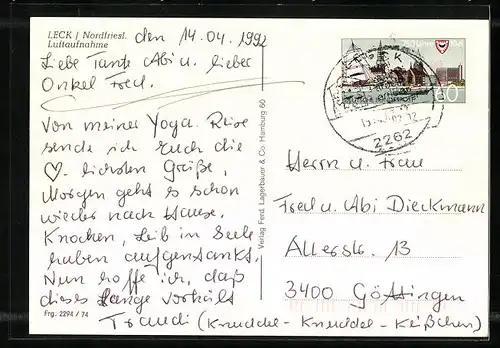 LECK / Nordfriesl.
Luftaufnahme
den 14.04.1992
Liebe Tante Abi u. lieber
Onkel Fred.
Von meiner Yoga Reise
sende ich Euch die
♡ lichsten Grüße,
Morgen geht es schon
wieder nach Hause.
Knochen, Leib u. Seele
haben aufgetankt.
Nun hoffe ich, daß
dieses lange vorhält
Traudi (Knuddel-Knuddel-Küßchen)
Frg. 2294 / 74
Verlag Ferd. Lagerbauer & Co. Hamburg 60
60
LECK
2262
Herrn u. Frau
Fred u. Abi Dieckmann
Allerstr. 13
3400 Göttingen